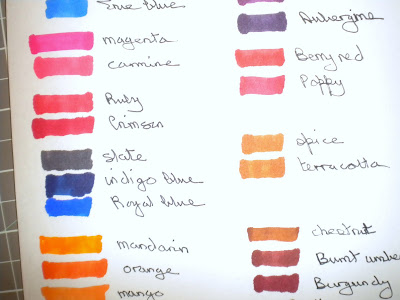 True blue
magenta
carmine
Ruby
Crimson
slate
indigo blue
Royal blue
mandarin
orange
mango
Aubergine
Berry red
Poppy
spice
terracotta
chestnut
Burnt umbe
Burgundy